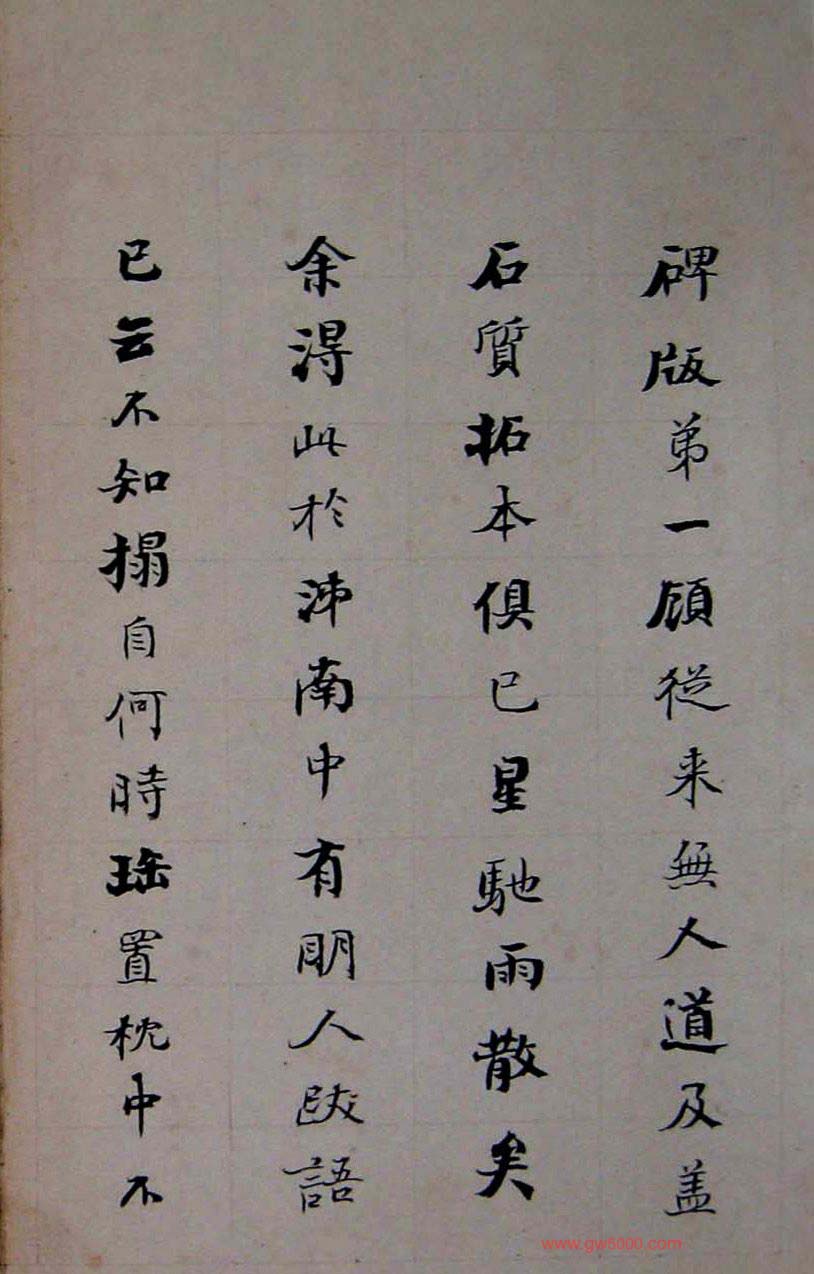 碑版弟一顧從来無人道及盖
石質拓本俱已星馳雨散矣
余淂此於沛南中有明人跋語
已云不知搨自何時珤置枕中不
www.gw8000.com